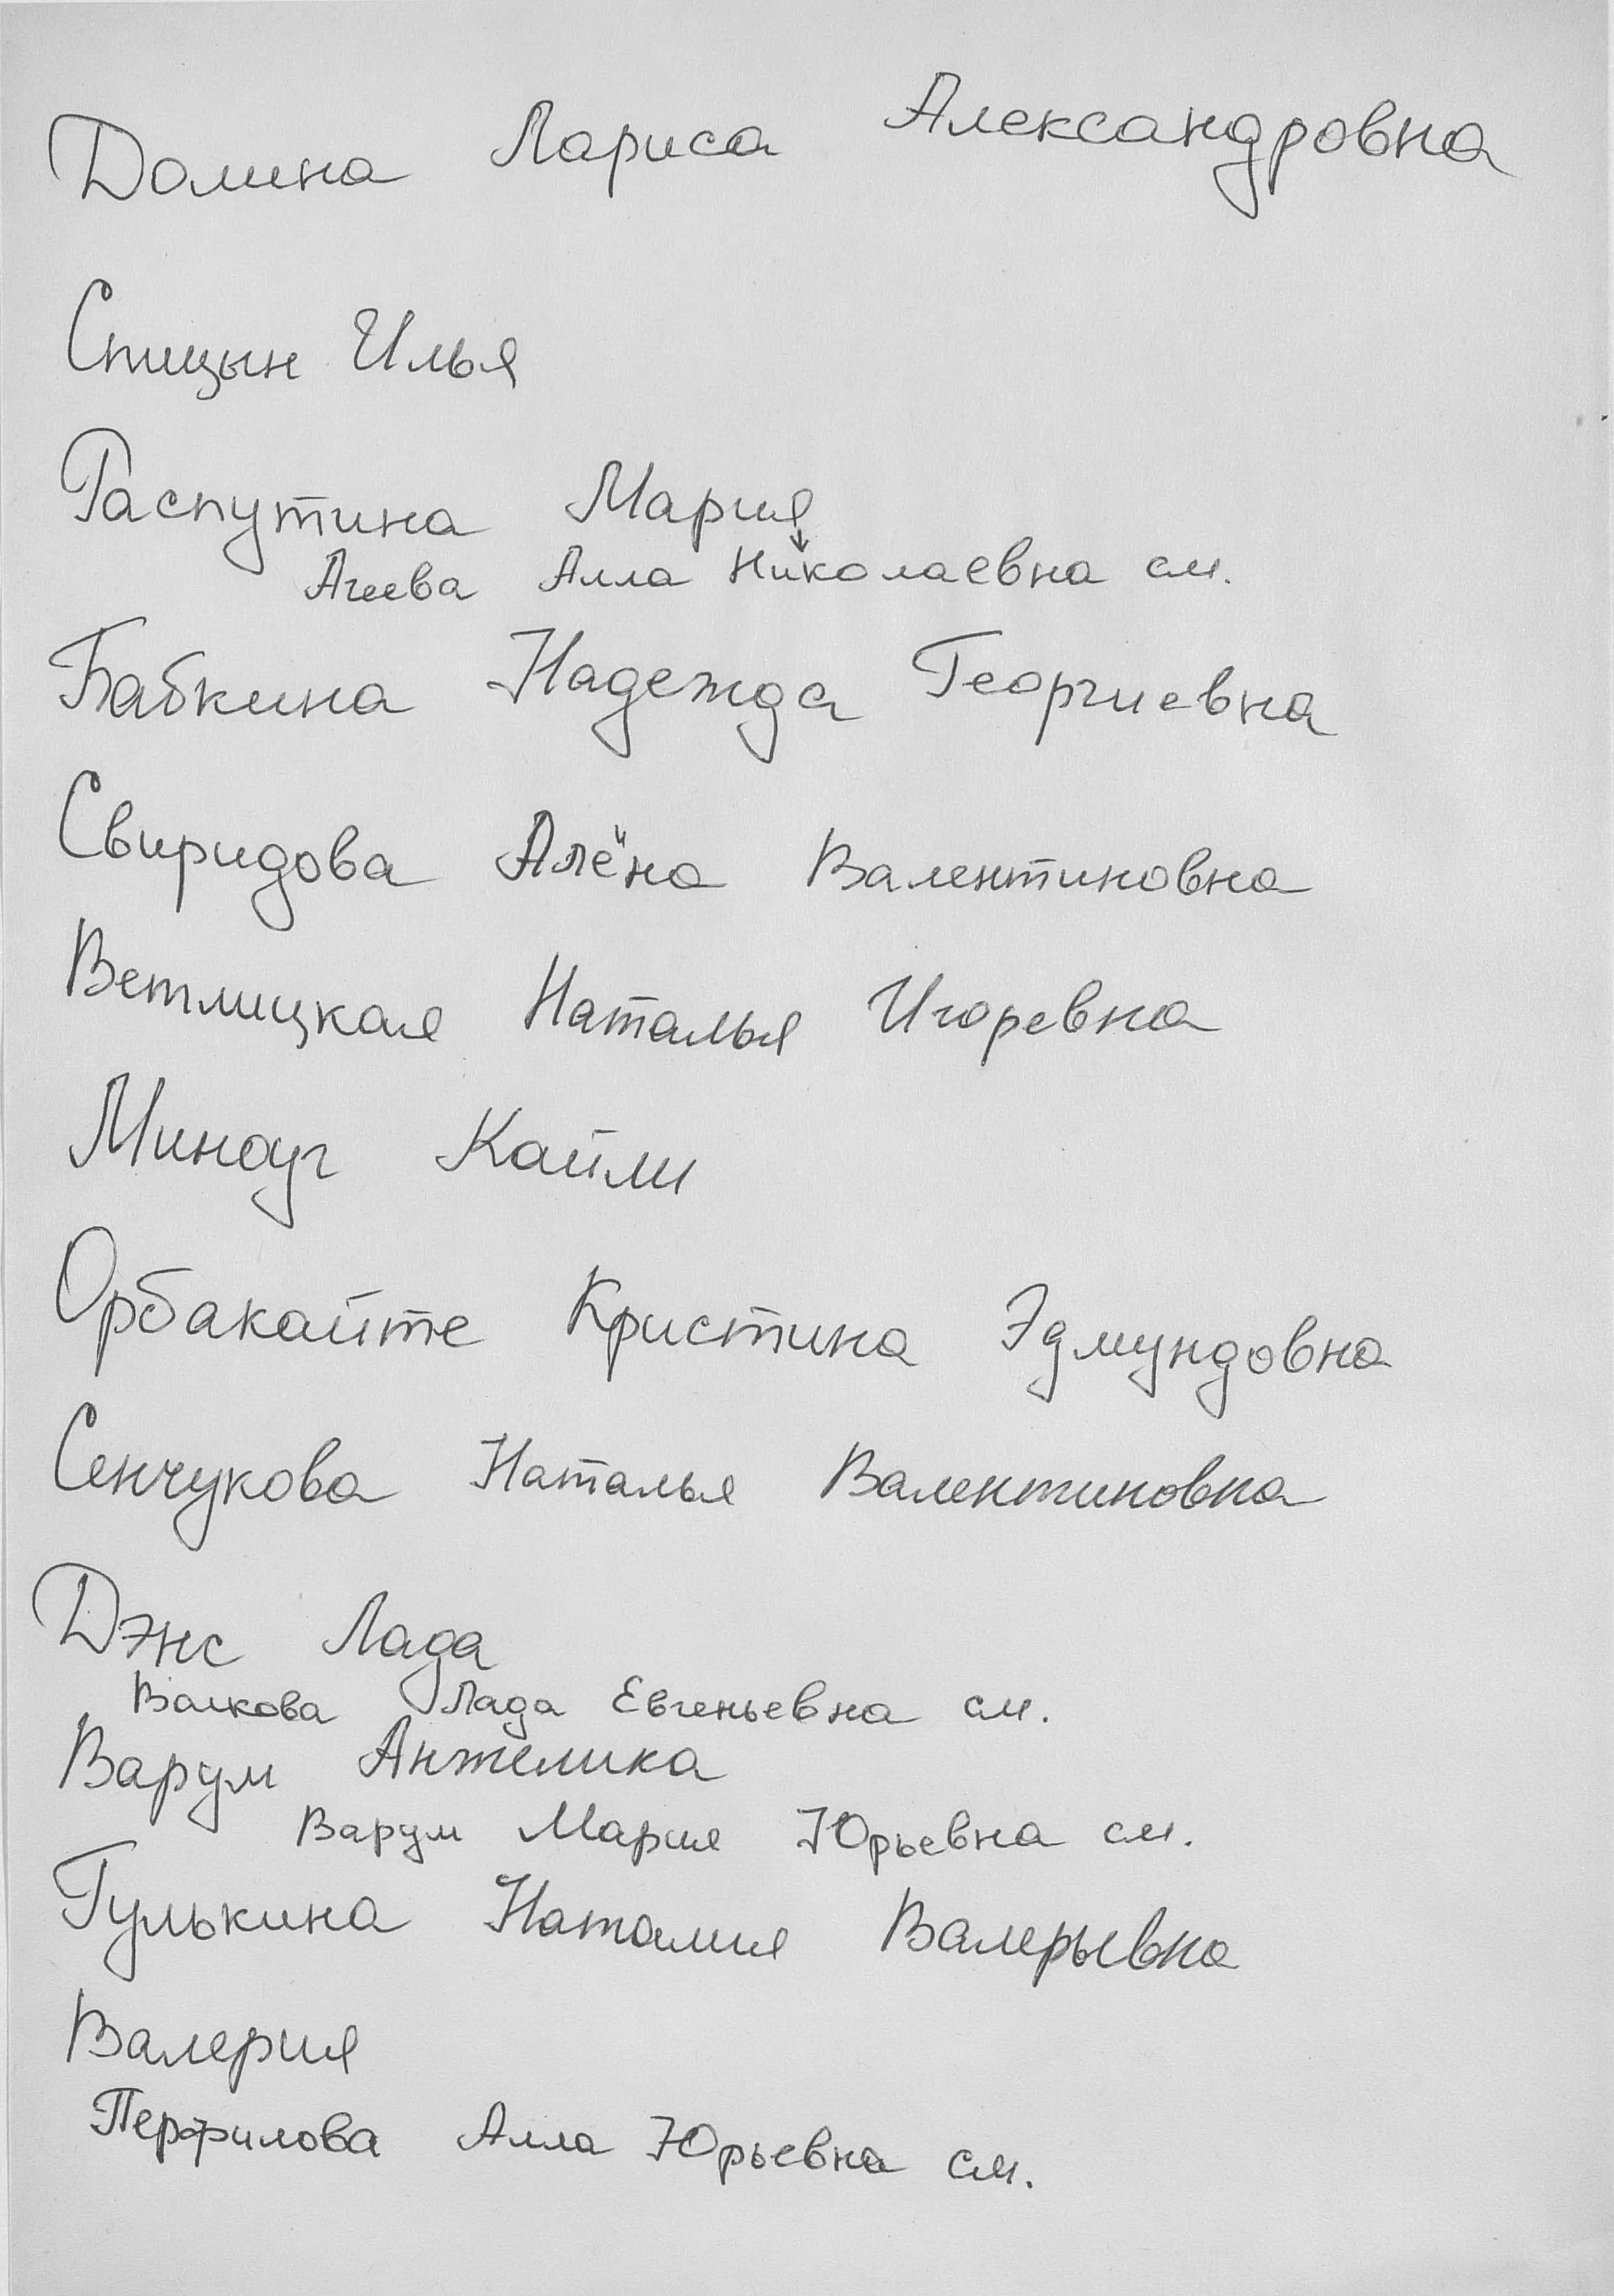 Долина Лариса Александровна
Спицын Илья
Распутина Мария
Агеева Алла Николаевна см.
Бабкина Надежда Георгиевна
Свиридова Алёна Валентиновна
Ветлицкая Наталья Игоревна
Миноуг Кайли
Орбакайте Кристина Эдмундовна
Сенчукова Наталья Валентиновна
Дэнс Лада
Волкова Лада Евгеньевна см.
Варум Анжелика
Варум Мария Юрьевна см.
Гулькина Наталия Валерьевна
Валерия
Перфилова Алла Юрьевна см.